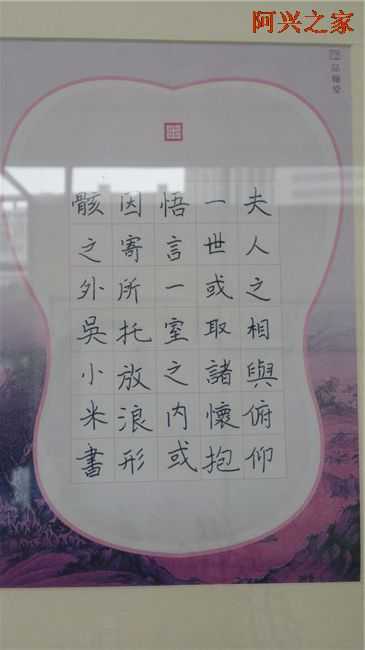 阿兴之家
夫人之相與俯仰
一世或取諸懷抱
悟言一室之内或
因寄所托放浪形
骸之外吳小米書